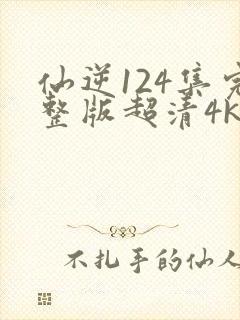 仙逆124集完
整版超清4K
不扎手的仙人